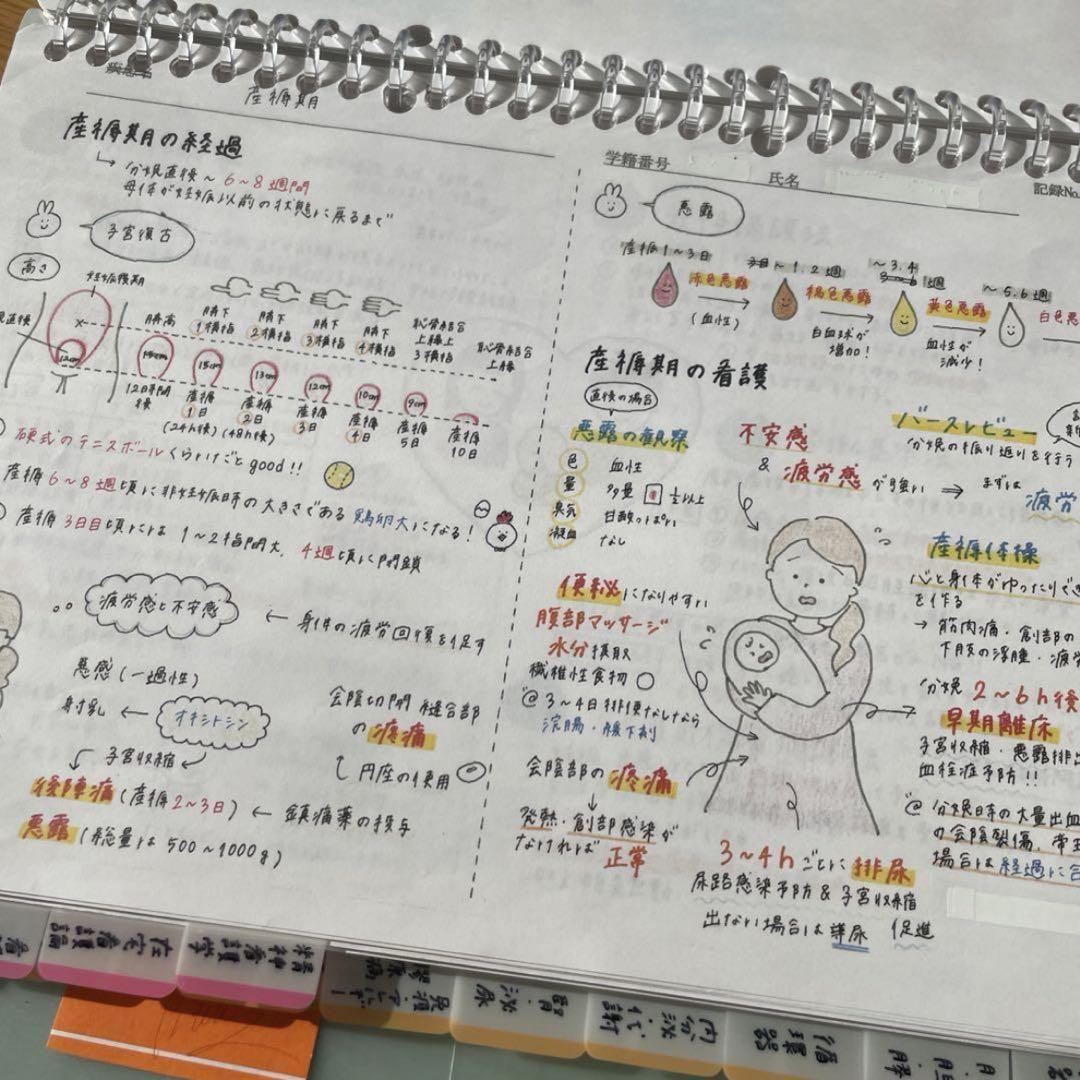 産褥期
産褥期の経過
分娩直後〜6〜8週間
母体が妊娠以前の状態に戻るまで
子宮復古
高さ
妊娠後期
12cm
臍高
臍下
1横指
臍下
2横指
臍下
3横指
臍下
4横指
恥骨結合
上縁上
3横指
恥骨結合
上縁
15cm
13cm
12cm
10cm
9cm
12時間
後
産褥
1日
(24h後)
産褥
2日
(48h後)
産褥
3日
産褥
4日
産褥
5日
産褥
10日
硬式のテニスボールくらいだとgood!!
産褥6〜8週頃に非妊娠時の大きさである鶏卵大になる!
産褥3日目頃には1〜2指開大、4週頃に閉鎖
疲労感と不安感
← 身体の疲労回復を促す
悪感(一過性)
射乳 ← オキシトシン
子宮収縮
後陣痛(産褥2〜3日) ← 鎮痛薬の投与
悪露(総量は500〜1000g)
会陰切開縫合部
の疼痛
円座の使用
学籍番号
氏名
記録No.
悪露
産褥1〜3日
〜1.2週
〜3.4
週
〜5.6週
赤色悪露
(血性)
褐色悪露
白血球が
増加!
黄色悪露
血性が
減少!
白色悪
産褥期の看護
直後の場合
悪露の観察
色 血性
量 多量 ½以上
臭気 甘酸っぱい
凝血 なし
不安感
&
疲労感が強い ⇒ まずは
疲労
バースレビュー
分娩の振り返りを行う
便秘になりやすい
腹部マッサージ
水分摂取
繊維性食物○
@3〜4日排便なしなら
浣腸・緩下剤
会陰部の疼痛
↓
発熱・創部感染が
なければ正常
産褥体操
心と身体がゆったりでき
を作る
→ 筋肉痛・創部の
下肢の浮腫・疲労
分娩2〜6h後
早期離床
子宮収縮・悪露排出
血栓症予防!!
@分娩時の大量出血
の会陰裂傷、帝王
場合は経過に合
3〜4hごとに排尿
尿路感染予防&子宮収縮
出ない場合は導尿 促進
在宅看護論
精神看護学
腎・泌尿
内分泌・代謝
循環器